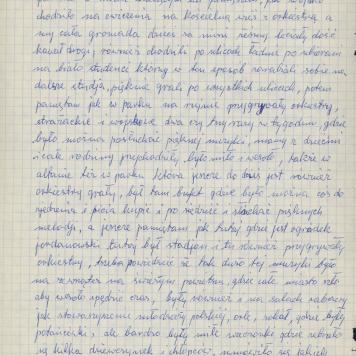 chodziło na ćwiczenia na Kościelną wraz z orkiestrą a
my cała gromada dzieci za nimi, rośnij kiedyś dość
kawał drogi, również chodzili po ulicach ładnie po ubierani
na biało studenci którzy w ten sposób zarabiali sobie na
dalsze studja, pięknie grali po wszystkich ulicach, potem
pamiętam jak w parku na rynku przygrywały orkiestry,
strażackie i wojskowe dwa czy trzy razy w tygodniu, gdzie
było można posłuchać pięknej muzyki, mamy z dziećmi
i całe rodziny przychodziły, było miło i wesoło, także w
albanie też w parku która jeszcze do dziś jest również
orkiestry grały, był tam bufet gdzie było można coś do
zjedzenia i picia kupić i po siedzieć i słuchać pięknych
melodyj, a jeszcze pamiętam jak tutaj gdzie jest ogródek
jordanowski tutaj był stadjon i tu również przygrywały
orkiestry, trzeba powiedzieć że tak dużo tej muzyki było
na zewnątrz na świeżym powietrzu, gdzie całe miasto szło
aby wesoło spędzić czas, były również i na salach zabawy
jak stowarzyszenie młodzieży polskiej, orle, sokół, gdzie były
potańcówki, ale bardzo były miłe wieczorki gdzie zebrało
się kilka dziewczynek i chłopców,